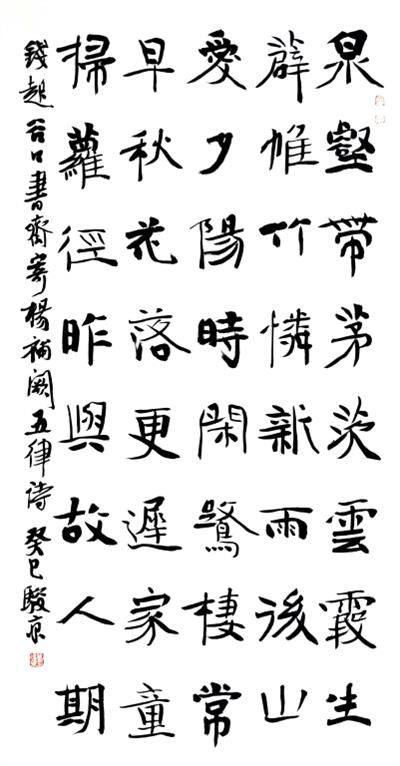 泉壑帶茅茨雲霞生
薜帷竹憐新雨後山
愛夕陽時閑鷺棲常
早秋花落更遲家童
掃蘿徑昨與故人期
錢起谷口書齋寄楊補闕五律诗 癸巳駿京